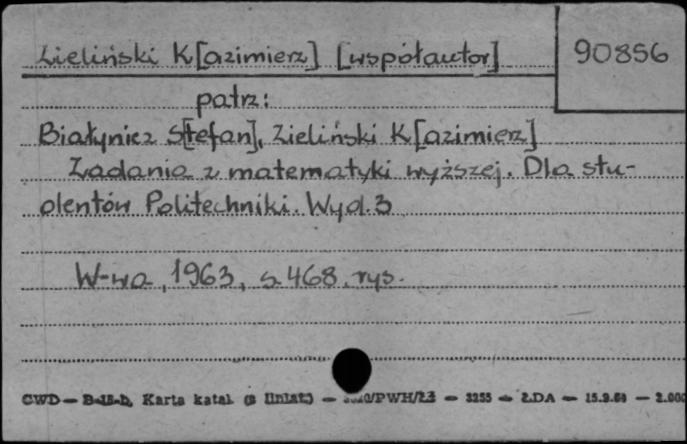 Zieliński K[azimierz] [współautor] 90856
patrz:
Białynicz S[tefan], Zieliński K[azimierz]
Zadania z matematyki wyższej. Dla stu-
dentów Politechniki. Wyd. 3
W-wa, 1963, s. 468, rys.
CWD — Karta katal. (z liniat.) — /PWH/Ł3 — 3255 — ŁDA — 15.9.64 — 2.000